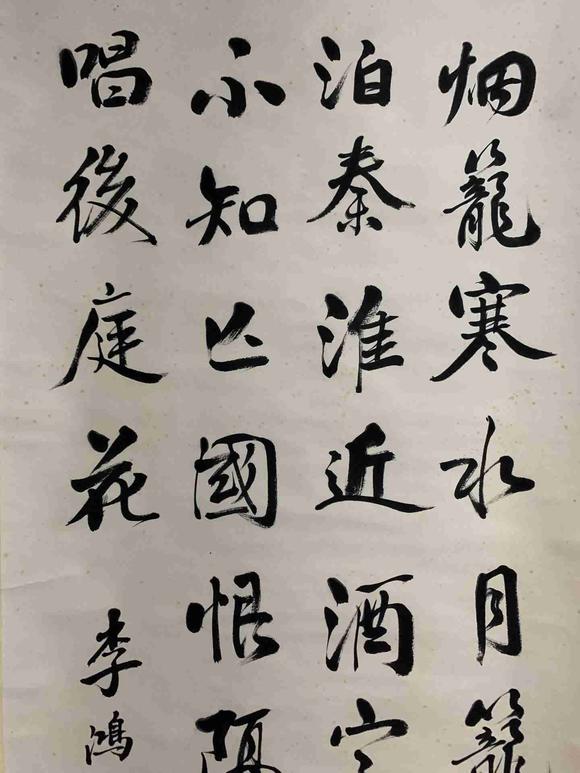 烟籠寒水月籠
泊秦淮近酒
不知亡國恨隔
唱後庭花
李鴻